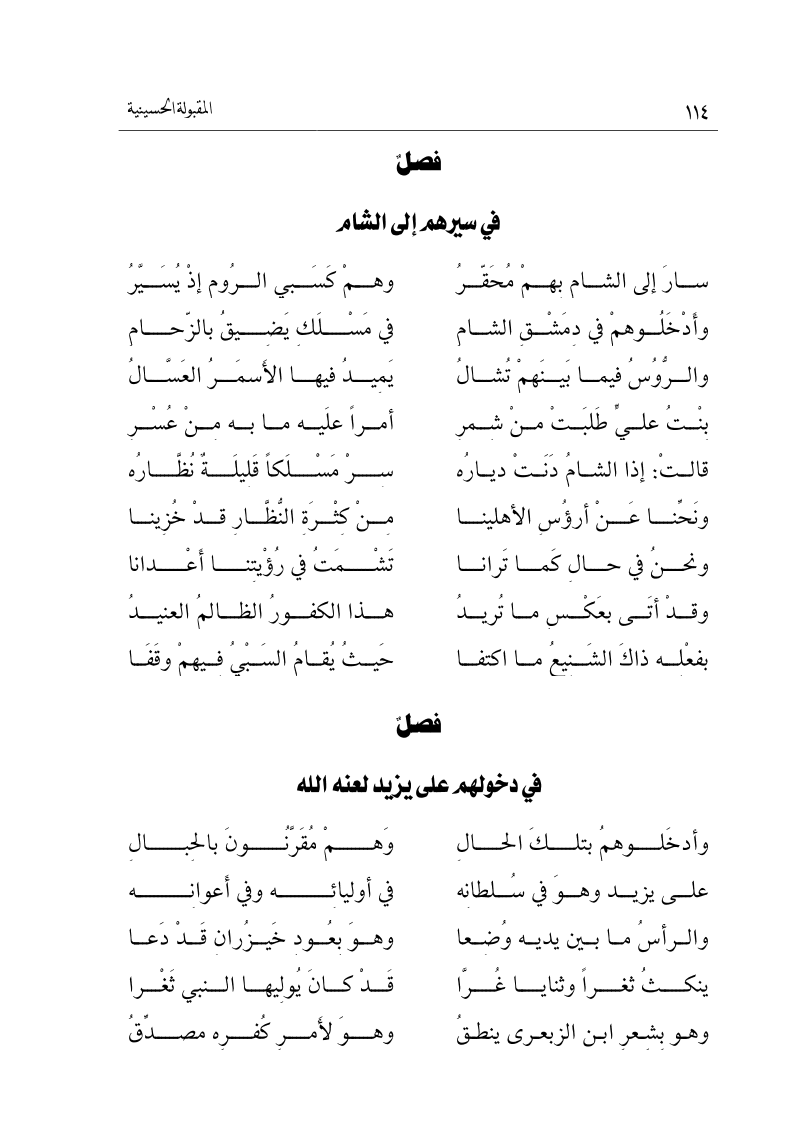 ١١٤ المقبولة الحسينية
فصلٌ
في سيرهم إلى الشام
سارَ إلى الشام بهمْ مُحَقّرُ وهمْ كَسَبي الرُوم إذْ يُسَيَّرُ
وأدْخَلُوهمْ في دمَشْق الشام في مَسْلَكٍ يَضيقُ بالزّحام
والرُّوُسُ فيما بَينَهمْ تُشالُ يَميدُ فيها الأسمَرُ العَسَّالُ
بنْتُ عليٍّ طَلَبَتْ منْ شمر أمراً علَيه ما به منْ عُسْر
قالتْ: إذا الشامُ دَنَتْ ديارُه سرْ مَسْلَكاً قَليلَةٌ نُظَّارُه
ونَحِّنا عَنْ أرؤُس الأهلينا منْ كثْرَة النُّظَّار قدْ خُزينا
ونحنُ في حال كَما تَرانا تَشْمَتُ في رُؤْيتنا أعْدانا
وقدْ أتَى بعَكْس ما تُريدُ هذا الكفورُ الظالمُ العنيدُ
بفعْله ذاكَ الشَنيعُ ما اكتفا حَيثُ يُقامُ السَبْيُ فيهمْ وقَفَا
فصلٌ
في دخولهم على يزيد لعنه الله
وأدخَلوهمُ بتلكَ الحال وَهمْ مُقَرَّنُونَ بالحبال
على يزيد وهوَ في سُلطانه في أوليائه وفي أعوانه
والرأسُ ما بين يديه وُضِعا وهوَ بعُودِ خَيزُرانٍ قَدْ دَعا
ينكثُ ثغراً وثنايا غُرَّا قَدْ كانَ يُوليها النبي ثَغْرا
وهو بِشعرِ ابن الزبعرى ينطقُ وهوَ لأمرِ كُفره مصدِّقُ